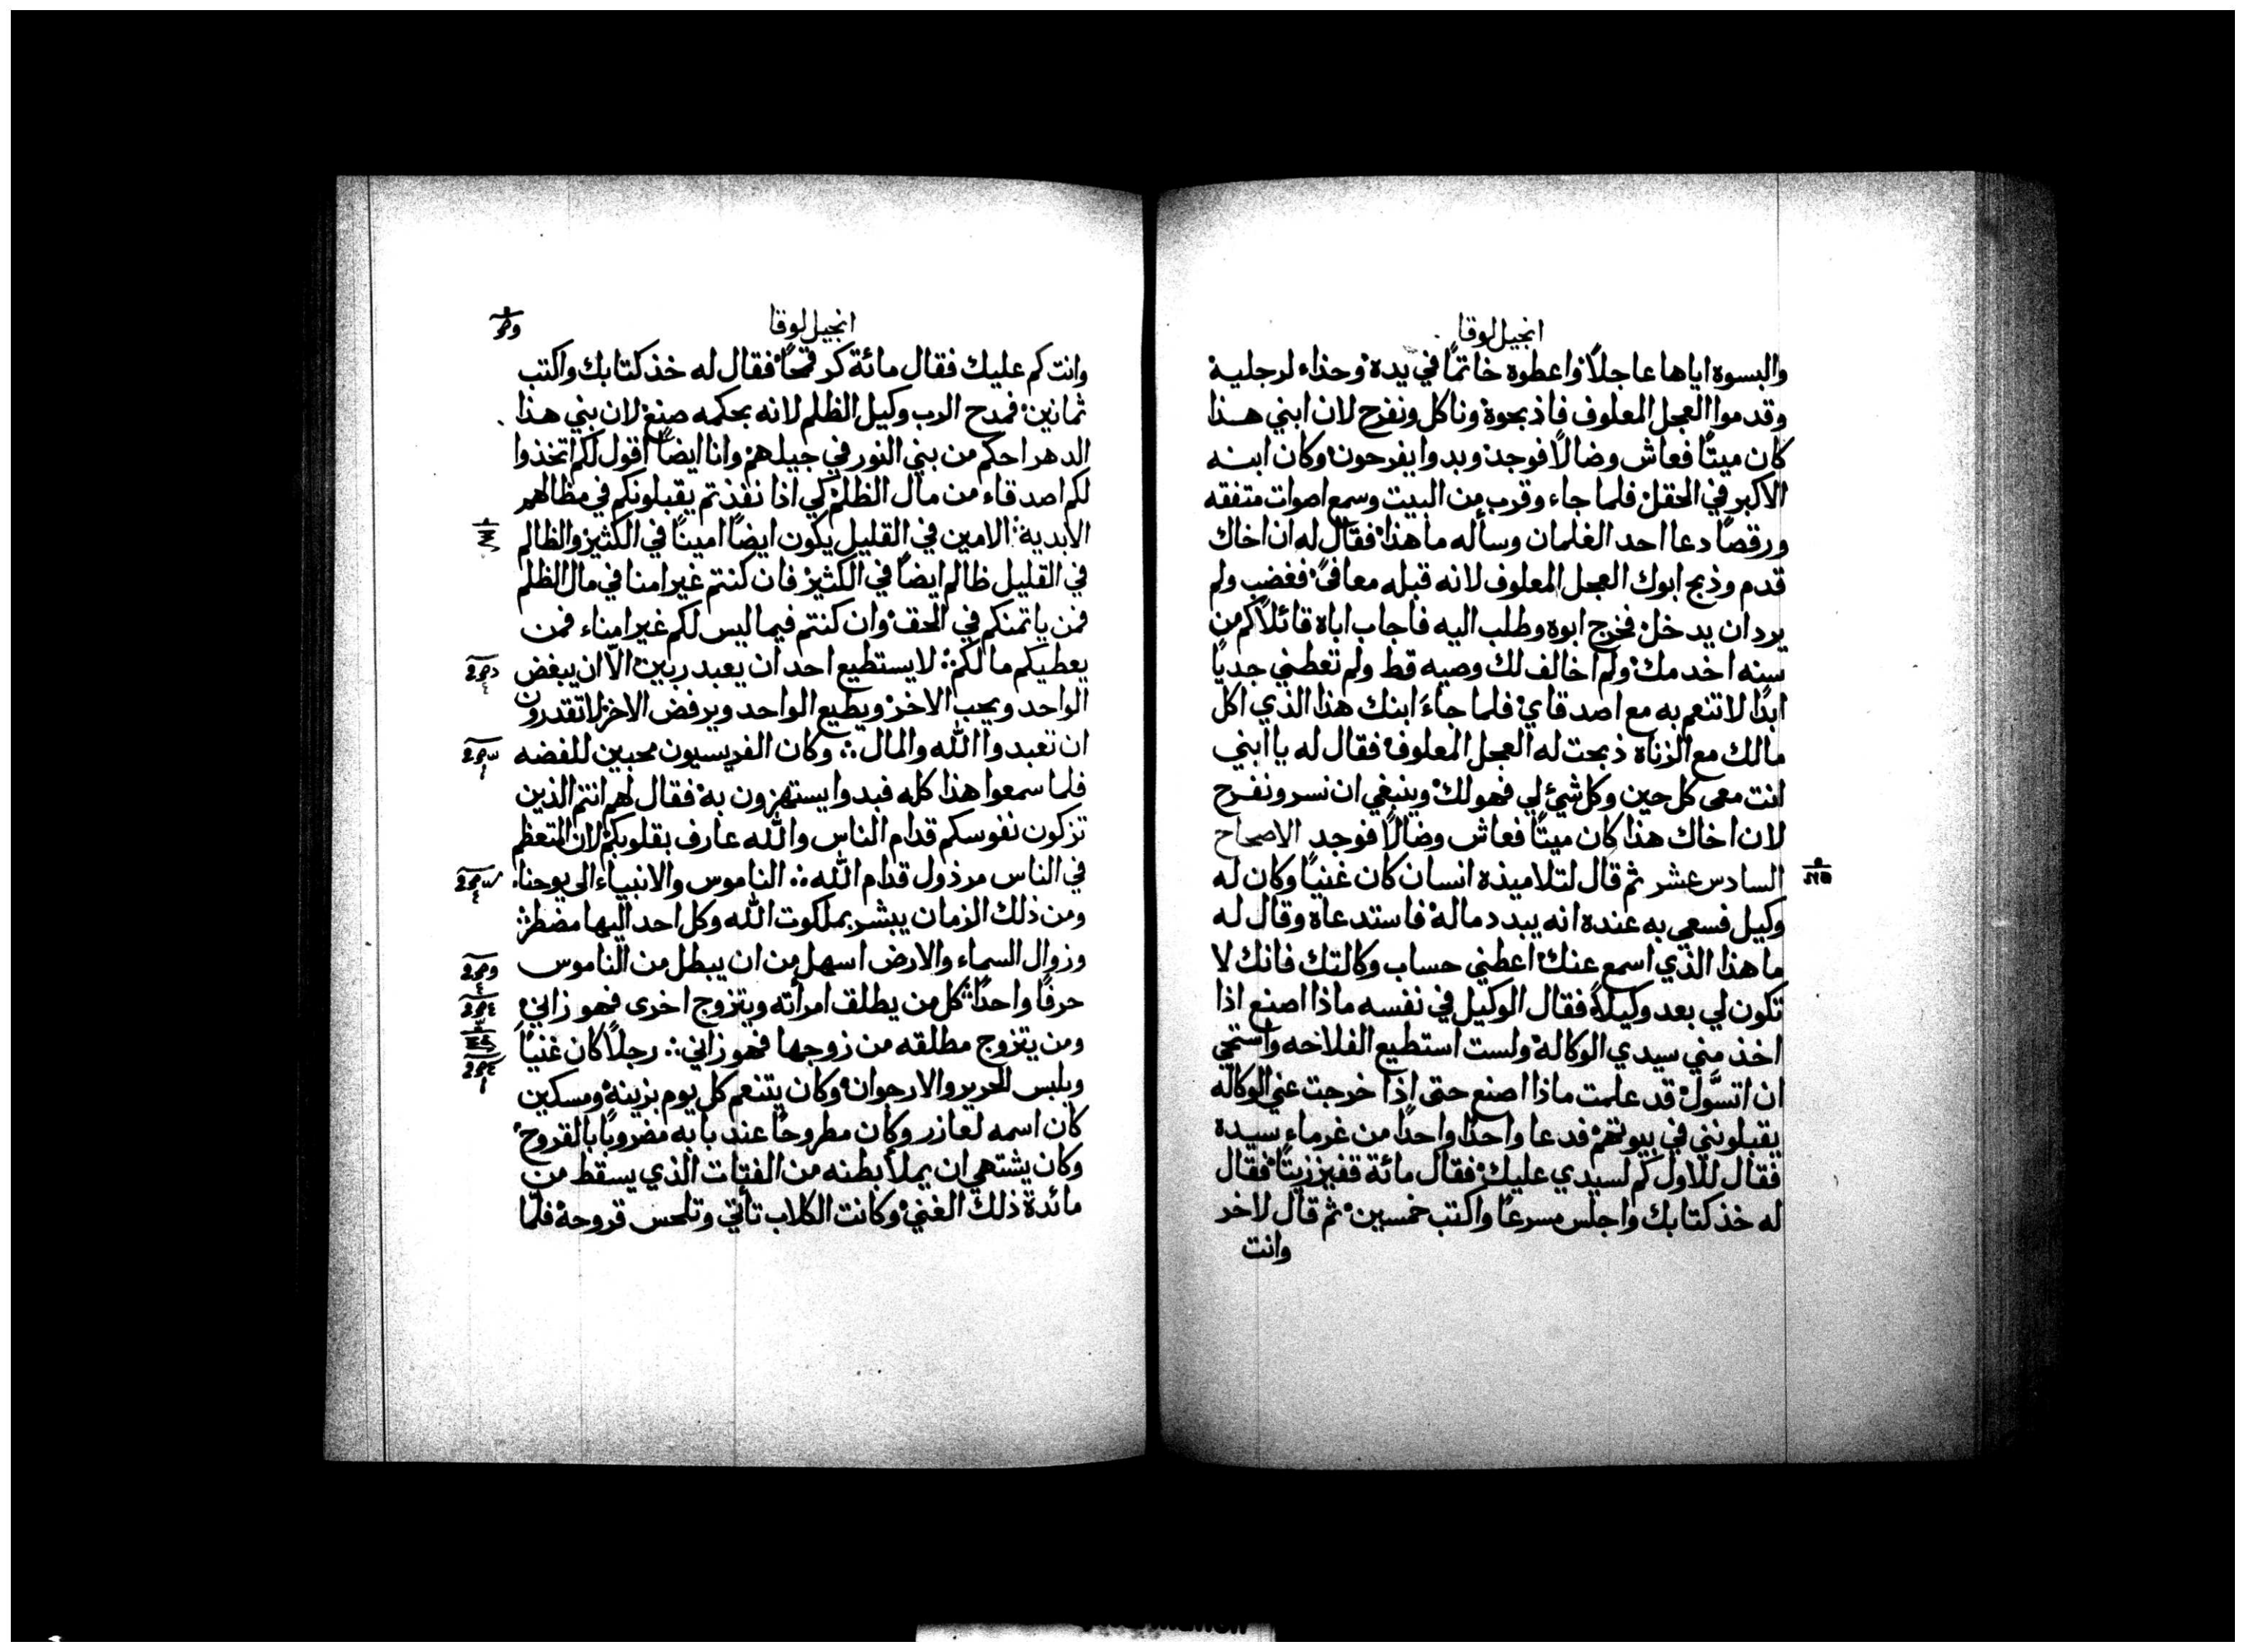 انجيل لوقا
والبسوه اياها عاجلاً واعطوه خاتمًا في يده وحذاء لرجليه
وقدموا العجل المعلوف فاذبحوه وناكل ونفرح لان ابني هذا
كان ميتًا فعاش وضالاً فوجد وبدوا يفرحون وكان ابنه
الاكبر في الحقل فلما جاء وقرب من البيت وسمع اصوات متفقه
ورقصًا دعا احد الغلمان وسأله ما هذا فقال له ان اخاك
قدم وذبح ابوك العجل المعلوف لانه قبله معافىً فغضب ولم
يرد ان يدخل فخرج ابوه وطلب اليه فاجاب اباه قائلاً كم من
سنه اخدمك ولم اخالف لك وصيه قط ولم تعطني جديًا
ابدًا لاتنعم به مع اصدقاي فلما جاءَ ابنك هذا الذي اكل
مالك مع الزناة ذبحت له العجل المعلوف فقال له يا ابني
انت معي كل حين وكل شيء لي فهو لك وينبغي ان نسر ونفرح
لان اخاك هذا كان ميتًا فعاش وضالاً فوجد الاصحاح
السادس عشر ثم قال لتلاميذه انسان كان غنيًا وكان له
وكيل فسعي به عنده انه يبدد ماله فاستدعاه وقال له
ما هذا الذي اسمع عنك اعطني حساب وكالتك فانك لا
تكون لي بعد وكيلاً فقال الوكيل في نفسه ماذا اصنع اذا
اخذ مني سيدي الوكالة ولست استطيع الفلاحه واستحي
ان اتسَّول قد علمت ماذا اصنع حتى اذا خرجت عني الوكاله
يقبلونني في بيوتهم فدعا واحدًا واحدًا من غرماء سيده
فقال للاول كم لسيدي عليك فقال مائة قفيز زيتًا فقال
له خذ كتابك واجلس مسرعًا واكتب خمسين ثم قال لاخر
وانت
انجيل لوقا
وانت كم عليك فقال مائة كر قمحًا فقال له خذ كتابك واكتب
ثمانين فمدح الرب وكيل الظلم لانه بحكمه صنع لان بني هذا
الدهر احكم من بني النور في جيلهم وانا ايضًا اقول لكم اتخذوا
لكم اصدقاء من مال الظلم كي اذا نفذتم يقبلونكم في مظالهم
الابدية الامين في القليل يكون ايضًا امينًا في الكثير والظالم
في القليل ظالم ايضًا في الكثير فان كنتم غير امنا في مال الظلم
فمن ياتمنكم في الحق وان كنتم فيما ليس لكم غير امناء فمن
يعطيكم ما لكم لا يستطيع احد ان يعبد ربين الاّ ان يبغض
الواحد ويحب الاخر ويطيع الواحد ويرفض الاخر لا تقدرون
ان تعبدوا الله والمال وكان الفريسيون محبين للفضه
فلما سمعوا هذا كله فبدوا يستهزون به فقال لهم انتم الذين
تزكون نفوسكم قدام الناس والله عارف بقلوبكم لان المتعظم
في الناس مرذول قدام الله الناموس والانبياء الى يوحنا
ومن ذلك الزمان يبشر بملكوت الله وكل احد اليها مضطر
وزوال السماء والارض اسهل من ان يبطل من الناموس
حرفًا واحدًا كل من يطلق امرأته ويتزوج اخرى فهو زاني
ومن يتزوج مطلقه من زوجها فهو زاني رجلاً كان غنيًا
ويلبس الحرير والارجوان وكان يتنعم كل يوم بزينة ومسكين
كان اسمه لعازر وكان مطروحًا عند بابه مضروبًا بالقروح
وكان يشتهي ان يملأ بطنه من الفتات الذي يسقط من
مائدة ذلك الغني وكانت الكلاب تأتي وتلحس قروحه فلما